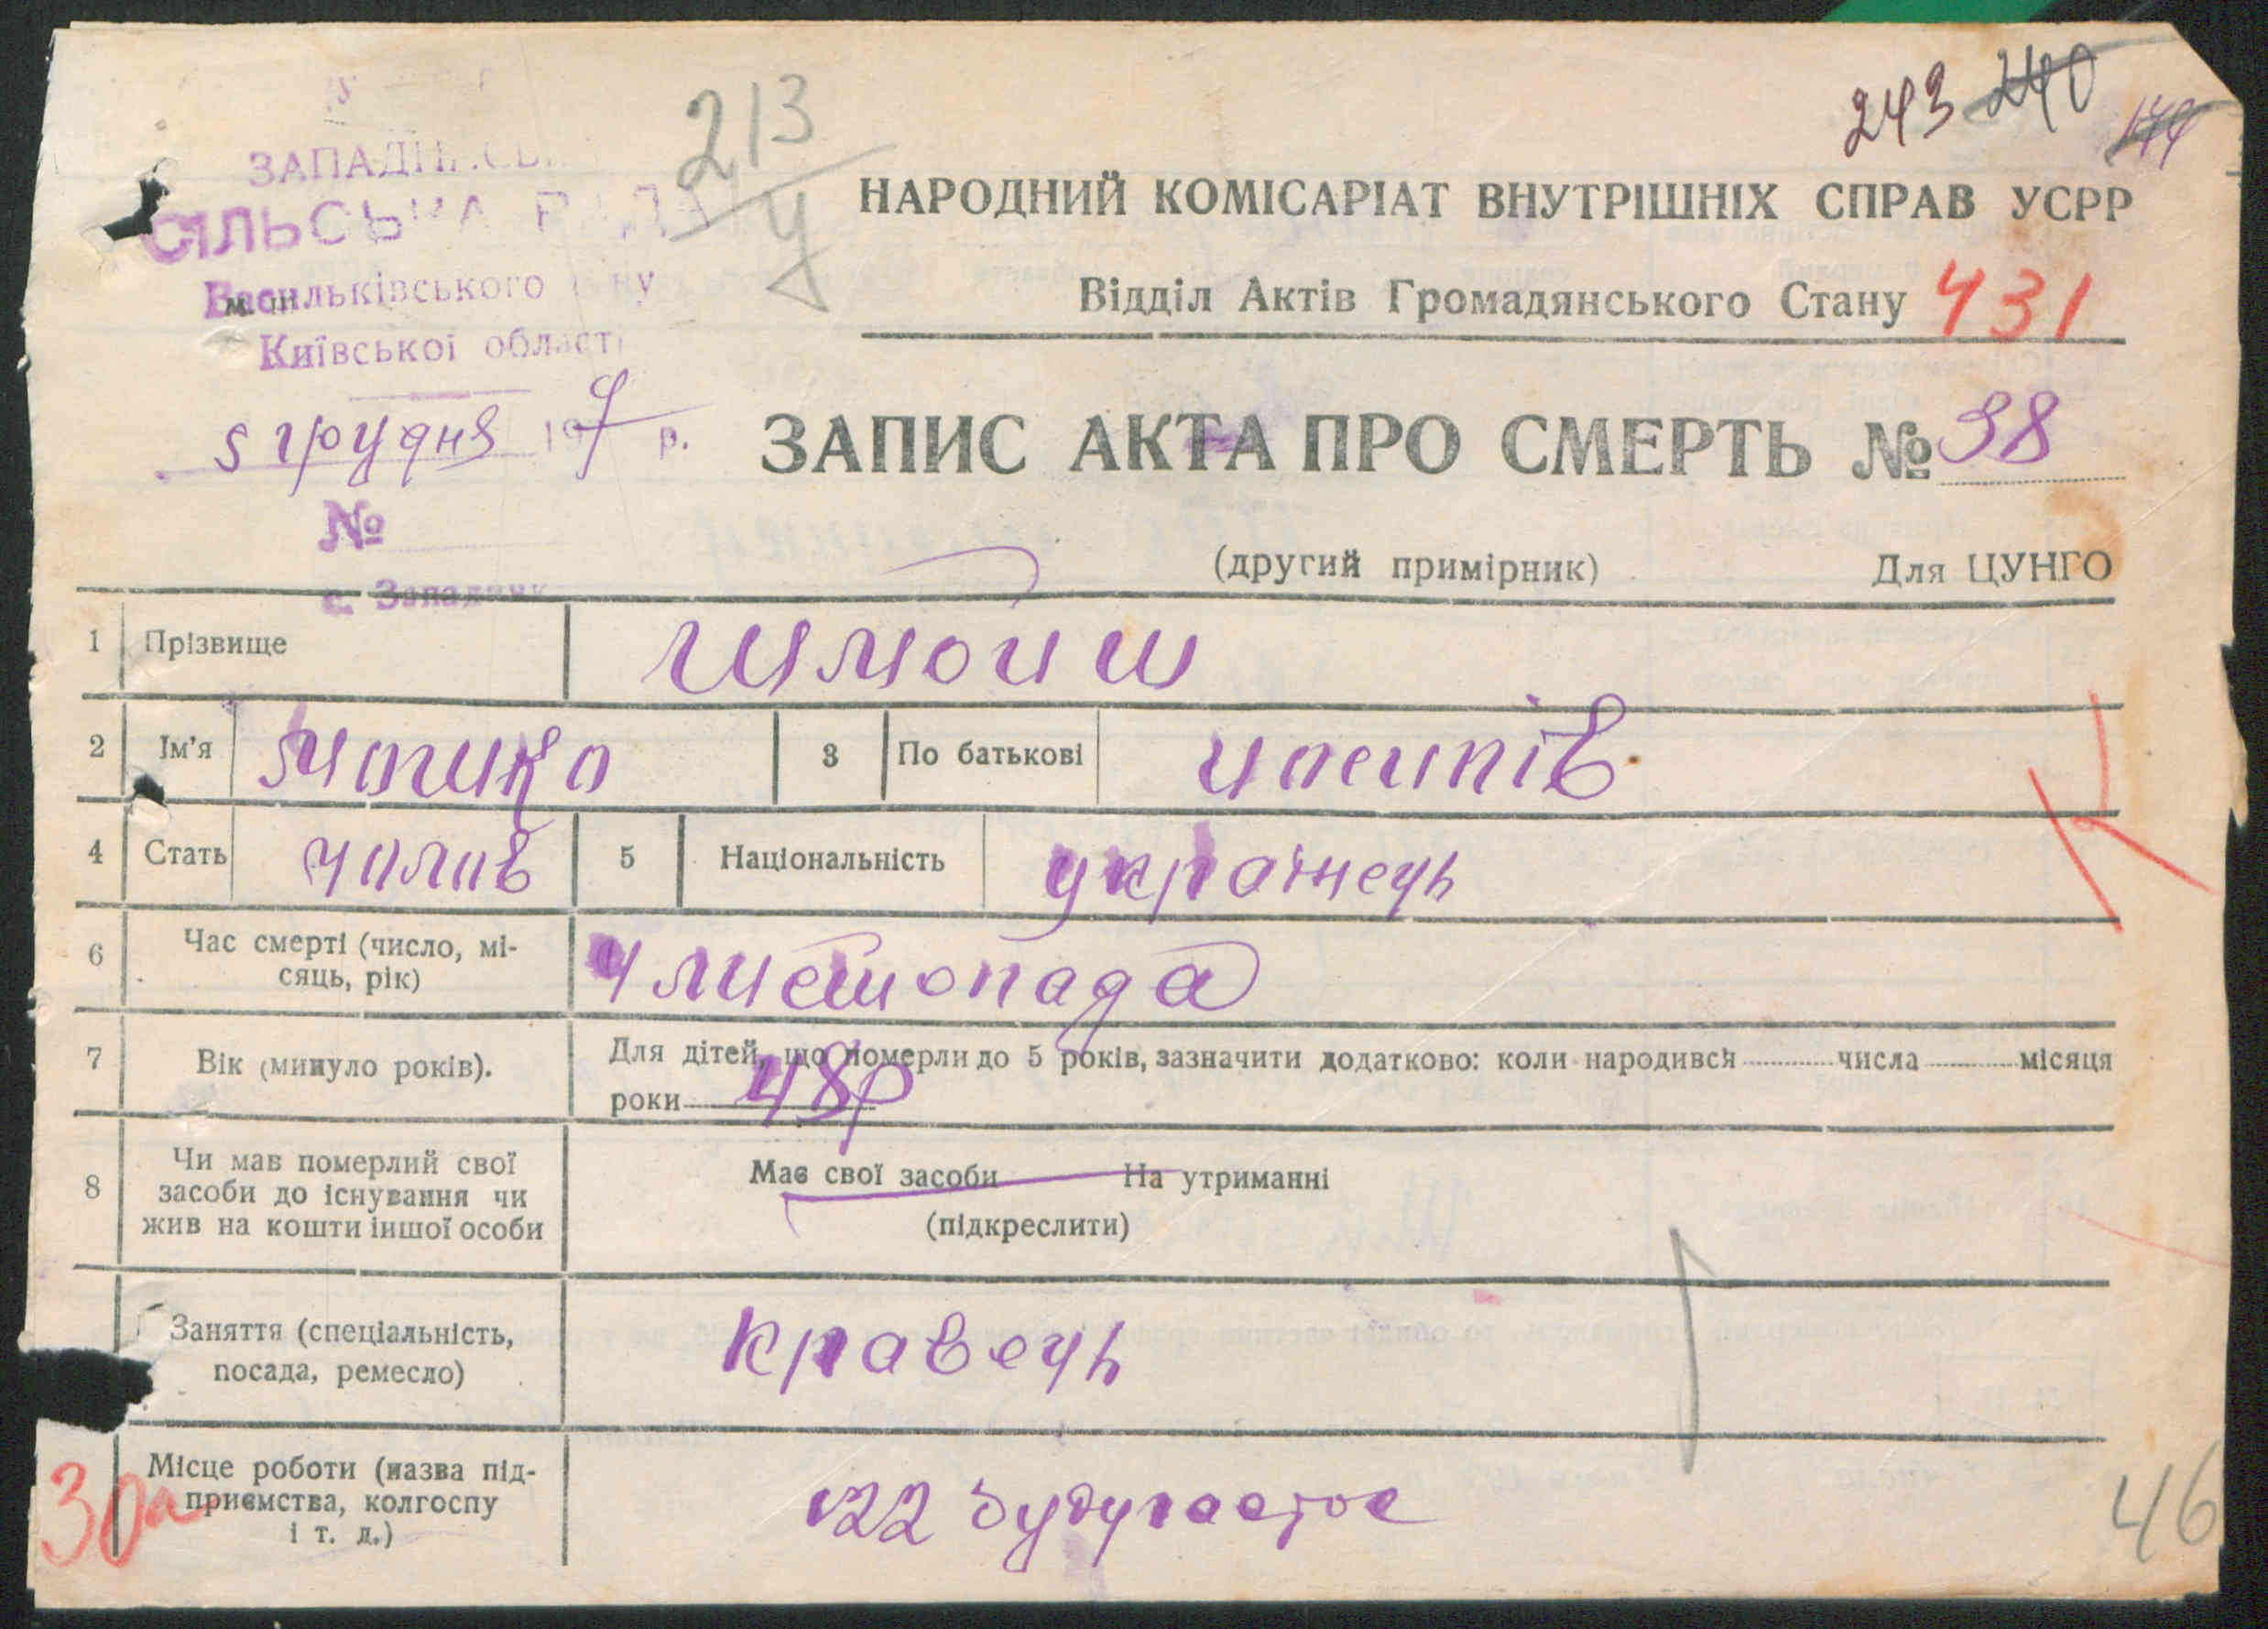 243 240
213
У
СІЛЬСЬКА РАДА
НАРОДНИЙ КОМІСАРІАТ ВНУТРІШНІХ СПРАВ УСРР
Васильківського
Відділ Актів Громадянського Стану 431
Київської області
5 грудня 19 р.
ЗАПИС АКТА ПРО СМЕРТЬ № 38
№
(другий примірник) Для ЦУНГО
с.
1 Прізвище
2 Ім'я 3 По батькові
4 Стать чолов 5 Національність українець
6 Час смерті (число, мі-
сяць, рік) 4 листопада
7 Вік (минуло років). Для дітей, що померли до 5 років, зазначити додатково: коли народився числа місяця
роки 48р
8 Чи мав померлий свої
засоби до існування чи
жив на кошти іншої особи
Має свої засоби На утриманні
(підкреслити)
Заняття (спеціальність,
посада, ремесло) кравець
Місце роботи (назва під-
приємства, колгоспу
і т. д.)
30а
46